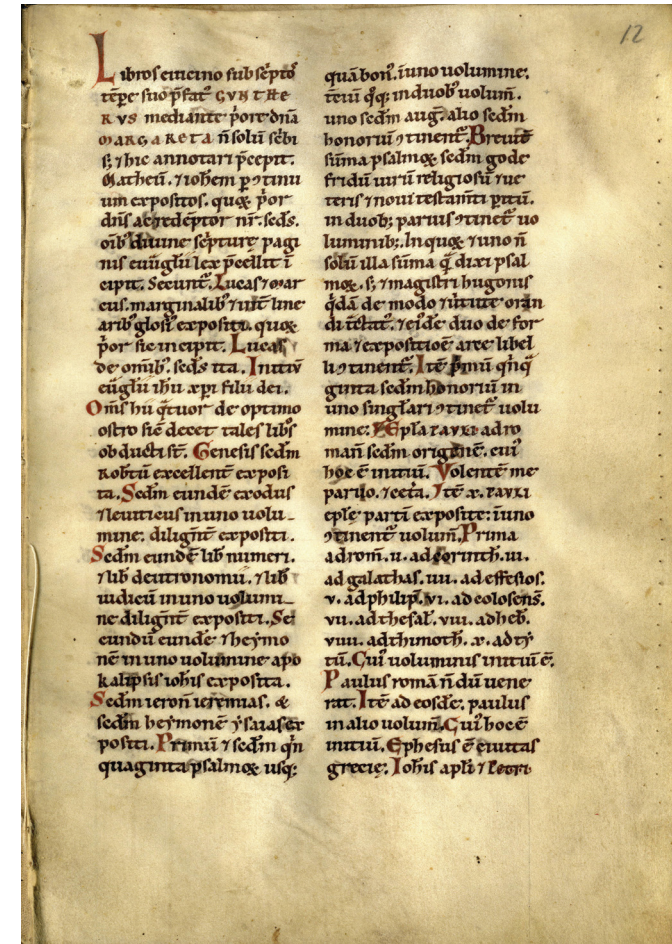 12
Libros eiu cino subscͥptos
tēpr̄e suo p̄fat᷒ GVNTHE
RVS mediante p̓ore dn̄a
MARGARETA n̄ solū sc̓bi
s; ⁊ hic annotari p̄cepit.
Matheū. ⁊ ioh̄em ꝑ ꝯtinu
um expositos. quoꝝ p̓or
dn̄s ac redēptor nr̄. sc̄ds.
oīb᷒ divine sc̓pture pagi
nis euūgłiū lex p̄cellit ī
cipit. Secunt᷒. Lucas ⁊ mar
cus. marginalib᷒ ⁊ int᷒ line
arib᷒ glosis expositi. quoꝝ
p̓or sic incipit. Lucas
de omīb᷒. sc̄ds ita. Initiū
euūgłii ih̄u xp̄i filii dei.
Om̄s hii q̄tuor de optimo
ostro sic̄ decet tales lib̓s
obducti st̄. Genesis sedm̄
Rob̓tū excellent᷒ exposi
ta. Sedm̄ eundē exodus
⁊ leuiticus in uno uolu
mine dilign̄t᷒ expositi.
Sedm̄ eundē lib᷒ numeri.
⁊ lib᷒ deutronomii. ⁊ lib᷒
iudicū in uno uolumi
ne dilign̄t᷒ expositi. Se
cundū eundē ⁊ heymo
nē in uno uolumine apo
kalipsis ioh̄is exposita.
Sedm̄ ieron̄ ieremias. &
sedm̄ heymonē ysaias ex
positi. Primū ⁊ sedm̄ q̄n
quaginta psalmoꝝ usq;
quā bon᷒. ī uno uolumine.
t̓ciū q̓q; in duob᷒ uolum̄.
uno sedm̄ aug᷒. alio sedm̄
honoriū ꝯtinent᷒. Breuis
sūma psalmoꝝ sedm̄ gode
fridū uirū religiosū ⁊ ue
teris ⁊ noui testam̄ti p̓itū.
in duob; paruis ꝯtinet᷒ uo
luminib;. In quoꝝ ⁊ uno n̄
solū illa sūma q̄ dixi psal
moꝝ. s; ⁊ magistri hugonis
q̄dā de modo ⁊ uirtute oran
di tētat᷒. ⁊ ei᷒dē duo de for
ma ⁊ expositiōe arce libel
li ꝯtinent᷒. Itē p̓mū q̓nq̄
ginta sedm̄ honoriū in
uno singłari ꝯtinet᷒ uolu
mine. Ep̄la PAVLI ad ro
man̄ sedm̄ origenē. cui᷒
hoc ē initiū. Volentē me
paruo. ⁊ cet̄a. Itē x. PAVLI
ep̄le partī exposite: ī uno
ꝯtinent᷒ uolum̄. Prima
ad rom̄. ii. ad corinth̄. iii.
ad galathas. iiii. ad effesios.
v. ad philip̄. vi. ad colosens̄.
vii. ad thesal᷒. viii. ad heb᷒.
viiii. ad thimoth̄. x. ad ty
tū. Cui᷒ voluminis initiū ē.
Paulus romā n̄dū uene
rat. Itē ad eosdē. paulus
in alio uolum̄. Cui᷒ hoc ē
initiū. Ephesus ē ciuitas
grecie. Ioh̄is apłi ⁊ Petri